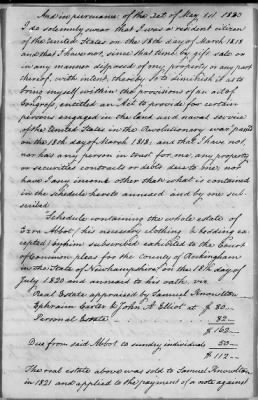 And in pursuance of the Act of May 1st 1820
I do solemnly swear that I was a resident citizen
of the United States on the 18th day of March 1818
and that I have not, since that time, by gift sale or
in any manner disposed of my property or any part
thereof, with intent, thereby so to diminish it as to
bring myself within the provisions of an act of
Congress, entitled an "Act to provide for certain
persons engaged in the land and naval service
of the United States in the Revolutionary war" passed
on the 18th day of March 1818: and that I have not,
nor has any person in trust for me, any property
or securities contracts or debts due to me, nor
have I any income other than what is contained
in the schedule hereto annexed and by me sub-
scribed
Schedule containing the whole estate of
Ezra Abbot (his necessary clothing & bedding ex-
cepted) by him subscribed exhibited to the Court
of Common pleas for the County of Rockingham
in the State of Newhampshire on the 18th day of
July 1820 and annexed to his oath, viz
Real Estate appraised by Samuel Knowlton
Ephraim & John A Elliot at $ 80—
Personal Estate 82—
$ 162—
Due from said Abbot to sundry individuals 50—
$ 112—
The real estate above was sold to Samuel Knowlton
in 1821 and applied to the payment of a note against